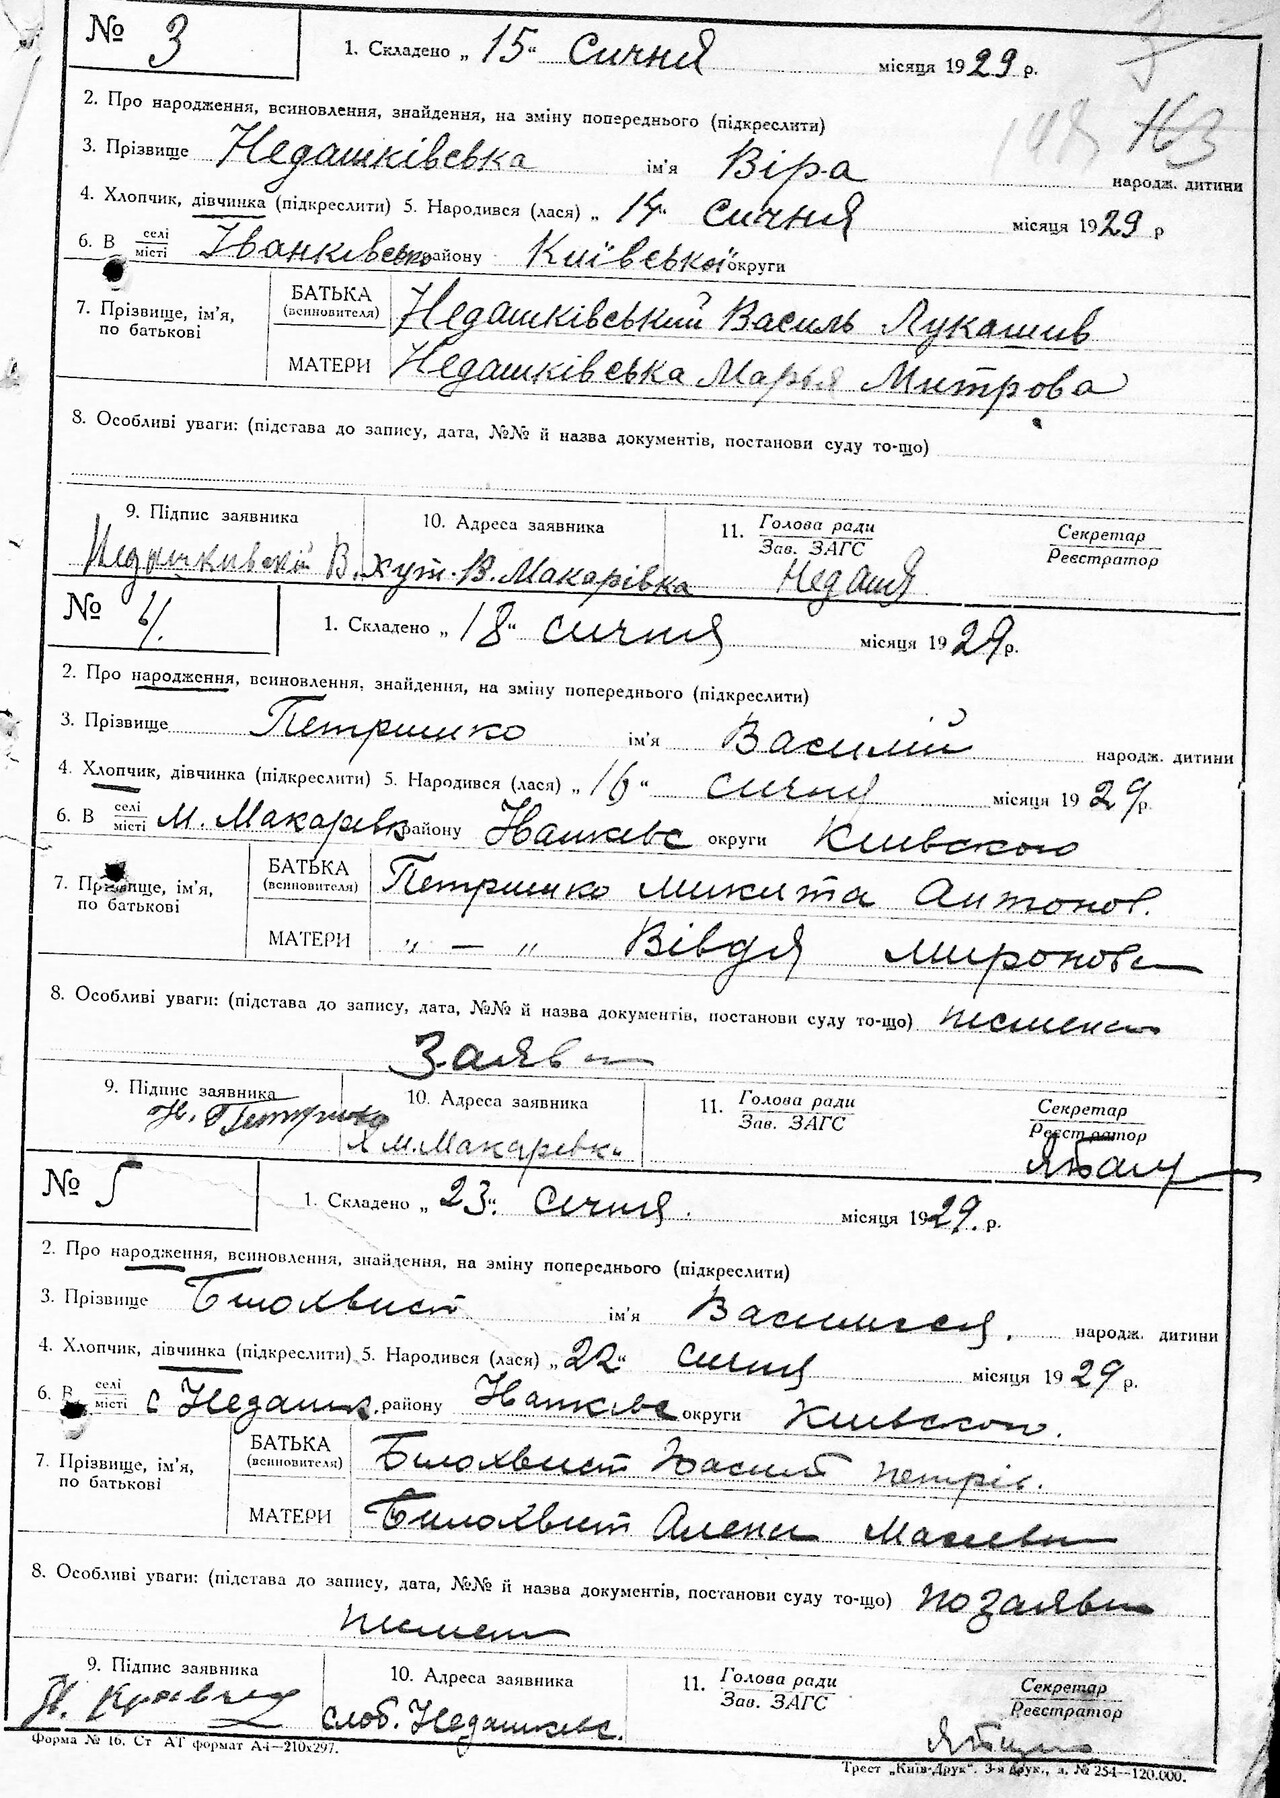 № 3 1. Складено „ 15 “ Січня місяця 1929 р.
163
2. Про народження, всиновлення, знайдення, на зміну попереднього (підкреслити)
3. Прізвище Недашківська ім'я Віра народж. дитини
4. Хлопчик, дівчинка (підкреслити) 5. Народився (лася) „ 14 “ січня місяця 1929 р
6. В селі/місті Іванківсько району Київської округи
7. Прізвище, ім'я, по батькові БАТЬКА (всиновителя) Недашківський Василь Лукашив
МАТЕРИ Недашківська Марья Митрова
8. Особливі уваги: (підстава до запису, дата, №№ й назва документів, постанови суду то-що)
9. Підпис заявника 10. Адреса заявника 11. Голова ради/Зав. ЗАГС Секретар/Реєстратор
В. хут. В. Макарівка
№ 4. 1. Складено „ 18 “ січня місяця 1929 р.
2. Про народження, всиновлення, знайдення, на зміну попереднього (підкреслити)
3. Прізвище Петришко ім'я Василій народж. дитини
4. Хлопчик, дівчинка (підкреслити) 5. Народився (лася) „ 16 “ січня місяця 1929 р.
6. В селі/місті М. Макаревк району Іванкевс округи Киевскою
7. Прізвище, ім'я, по батькові БАТЬКА (всиновителя) Петришко Микита Антонов.
МАТЕРИ „ — „ Вівдя Миронов
8. Особливі уваги: (підстава до запису, дата, №№ й назва документів, постанови суду то-що)
Заяв
9. Підпис заявника 10. Адреса заявника 11. Голова ради/Зав. ЗАГС Секретар/Реєстратор
Н. Петришко м. Макаревк
№ 5 1. Складено „ 23 “ Січня місяця 1929. р.
2. Про народження, всиновлення, знайдення, на зміну попереднього (підкреслити)
3. Прізвище Билохвист ім'я народж. дитини
4. Хлопчик, дівчинка (підкреслити) 5. Народився (лася) „ 22 “ січня місяця 1929 р.
6. В селі/місті с Недашк. району Іванкевс округи Киевскою.
7. Прізвище, ім'я, по батькові БАТЬКА (всиновителя) Билохвист Петрів.
МАТЕРИ Билохвист
8. Особливі уваги: (підстава до запису, дата, №№ й назва документів, постанови суду то-що) по заяві
9. Підпис заявника 10. Адреса заявника 11. Голова ради/Зав. ЗАГС Секретар/Реєстратор
слоб. Недашкевс.
Форма № 16. Ст АТ формат А4—210х297.
Трест „Київ-Друк“. 3-я друк., з. № 254—120.000.